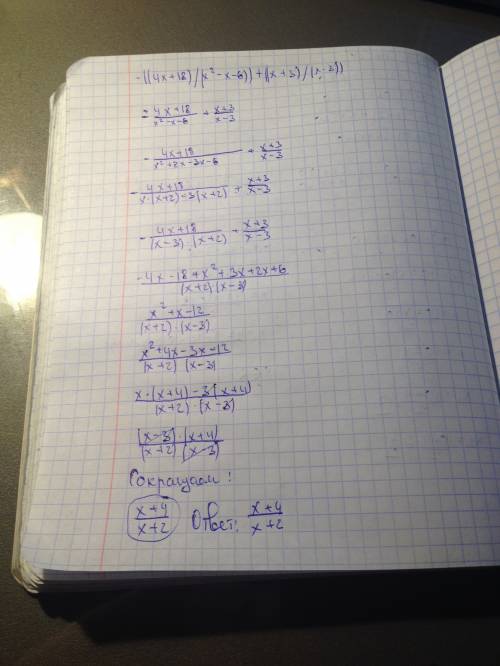 -((4x+18)/(x²-x-6))+((x+3)/(x-3))
= 4x+18/x²-x-6 + x+3/x-3
- 4x+18/x²+2x-3x-6 + x+3/x-3
- 4x+18/x·(x+2)-3(x+2) + x+3/x-3
- 4x+18/(x-3)·(x+2) + x+3/x-3
-4x-18+x²+3x+2x+6/(x+2)(x-3)
x²+x-12/(x+2)·(x-3)
x²+4x-3x-12/(x+2)·(x-3)
x·(x+4)-3(x+4)/(x+2)·(x-3)
(x-3)·(x+4)/(x+2)·(x-3)
Сокращаем!
x+4/x+2 Ответ: x+4/x+2